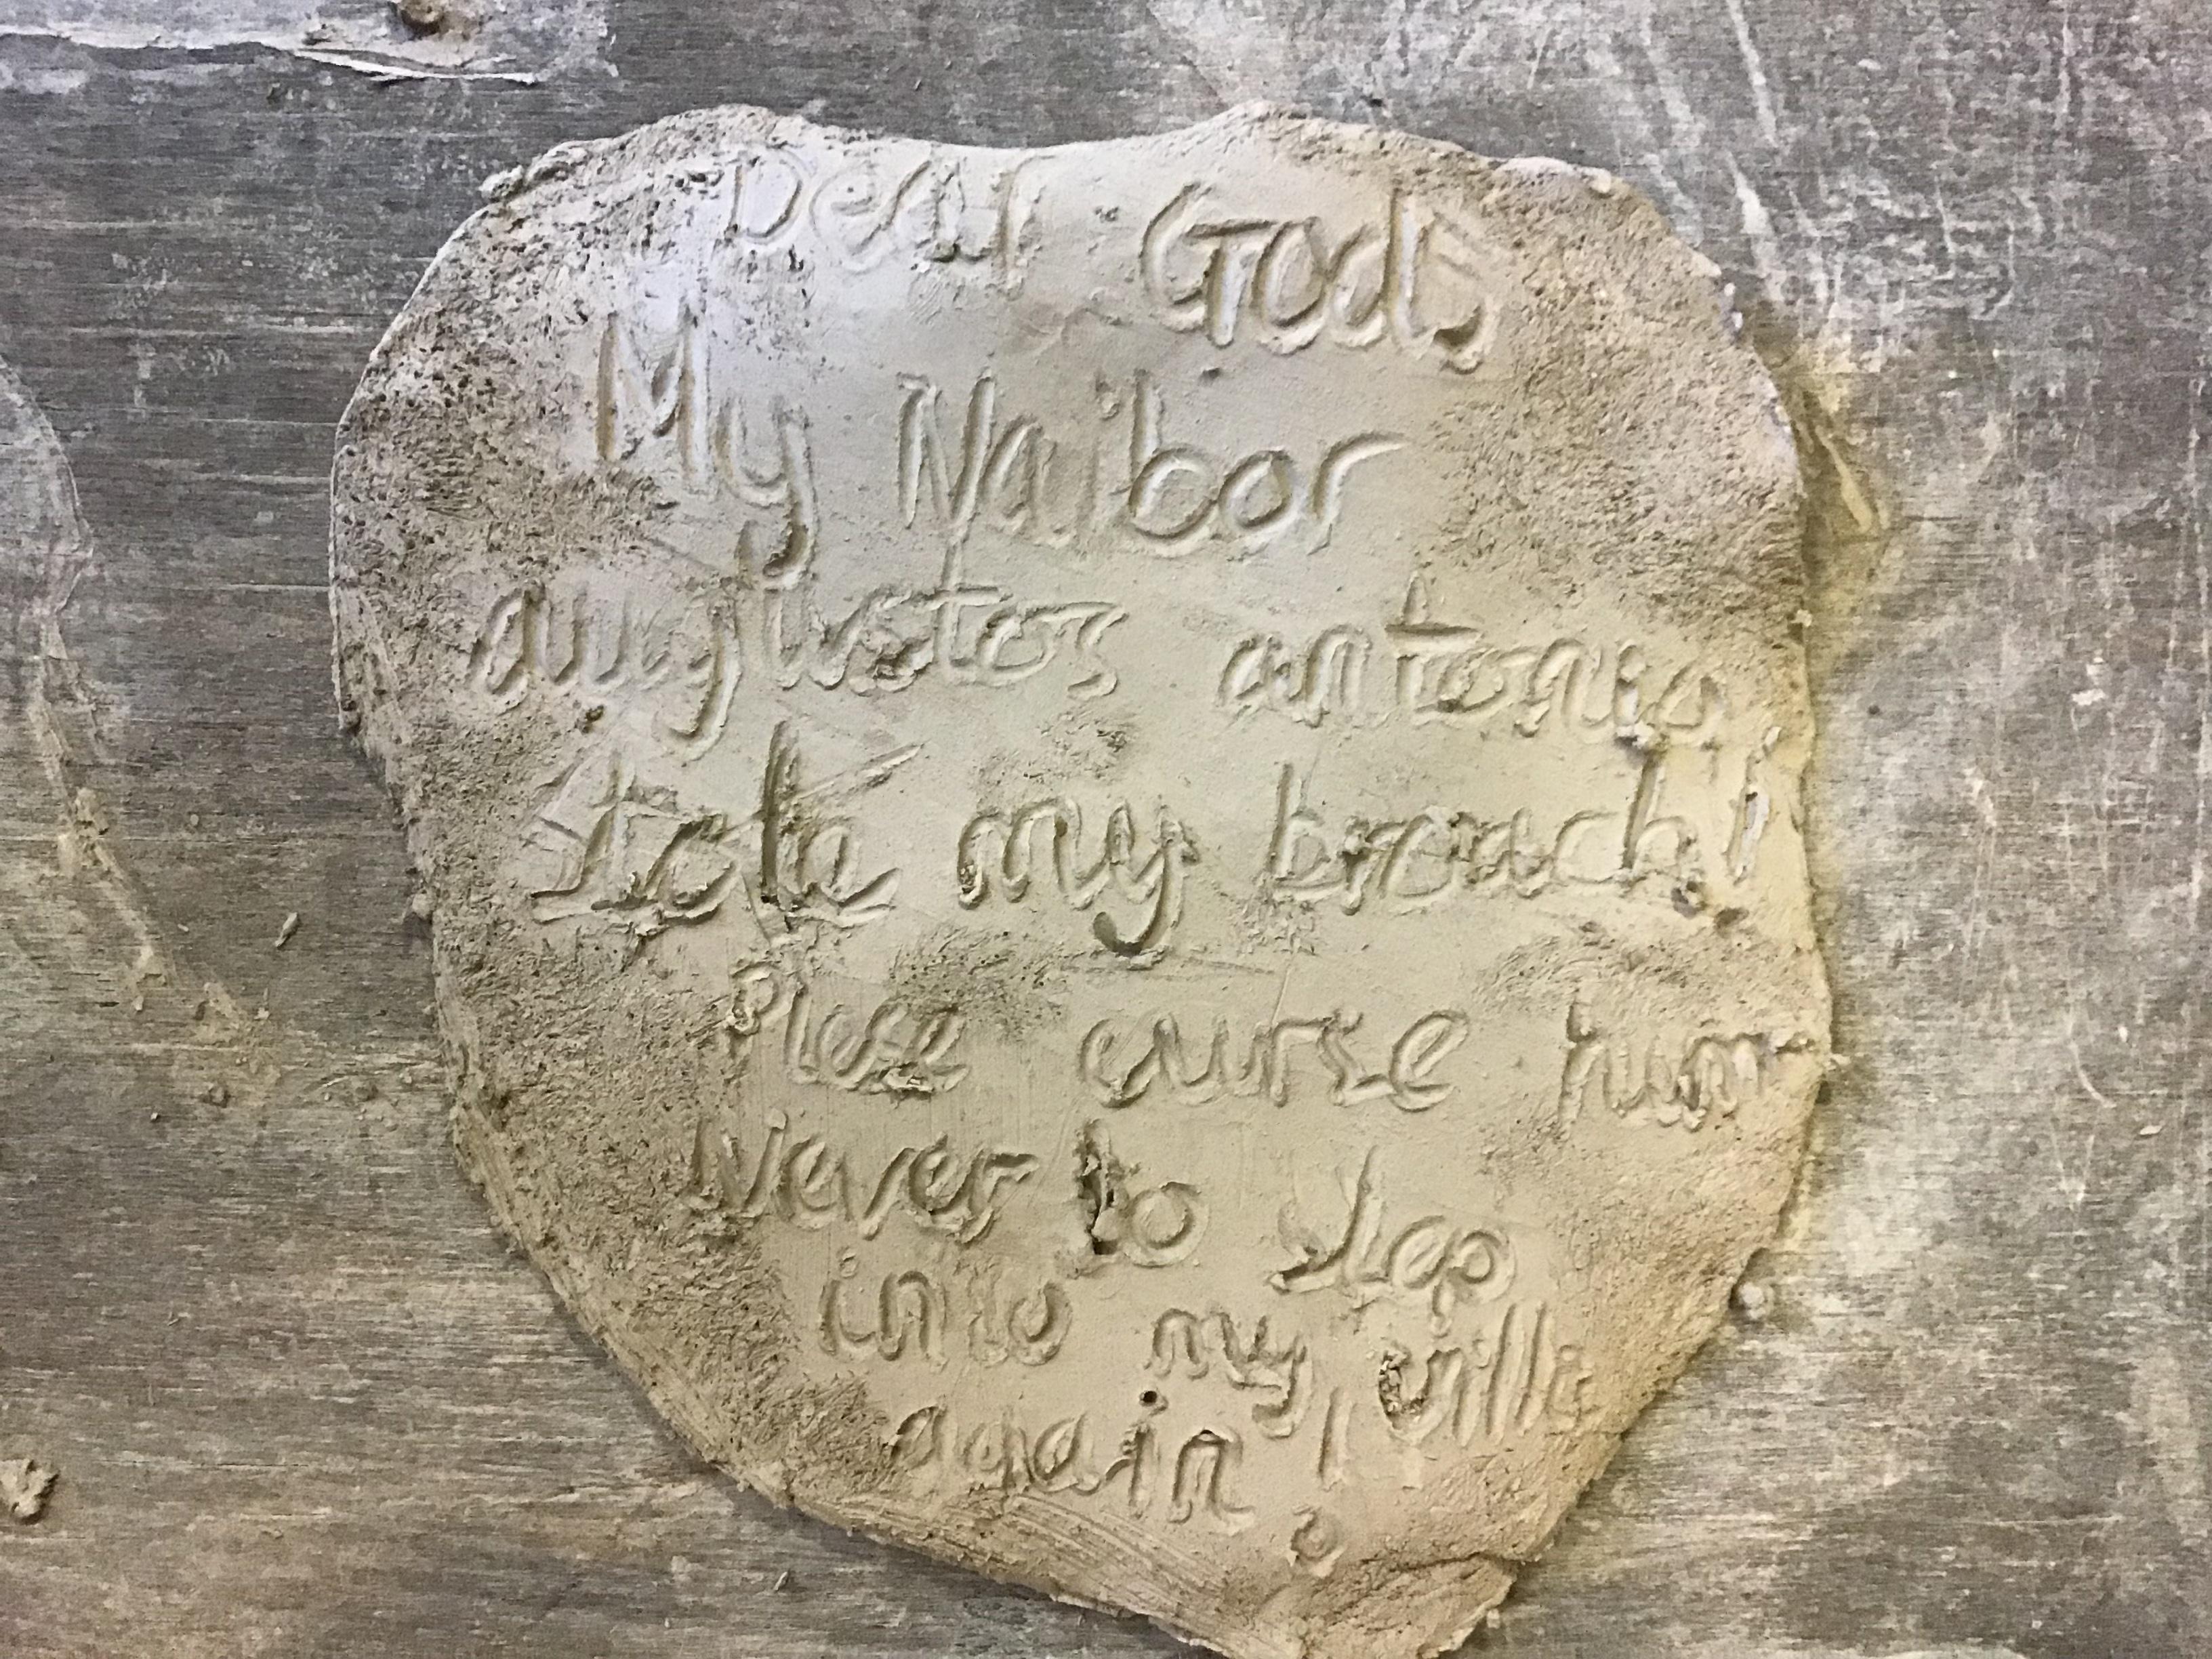 Dear Gods
My Naibor
augustos antonio
stole my broach!
Plese curse him
Never to step
into my villa
again!